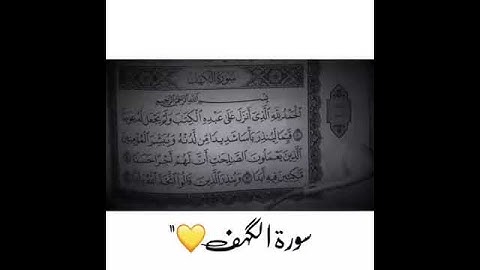 سُورَةُ الكَهْفِ
بِسْمِ اللَّهِ الرَّحْمَٰنِ الرَّحِيمِ
ٱلْحَمْدُ لِلَّهِ ٱلَّذِىٓ أَنزَلَ عَلَىٰ عَبْدِهِ ٱلْكِتَٰبَ وَلَمْ يَجْعَل لَّهُۥ عِوَجَا
قَيِّمًا لِّيُنذِرَ بَأْسًا شَدِيدًا مِّن لَّدُنْهُ وَيُبَشِّرَ ٱلْمُؤْمِنِينَ
ٱلَّذِينَ يَعْمَلُونَ ٱلصَّٰلِحَٰتِ أَنَّ لَهُمْ أَجْرًا حَسَنًا
مَّٰكِثِينَ فِيهِ أَبَدًا وَيُنذِرَ ٱلَّذِينَ قَالُوا۟ ٱتَّخَذَ ٱللَّهُ
سورة الگهف💛"